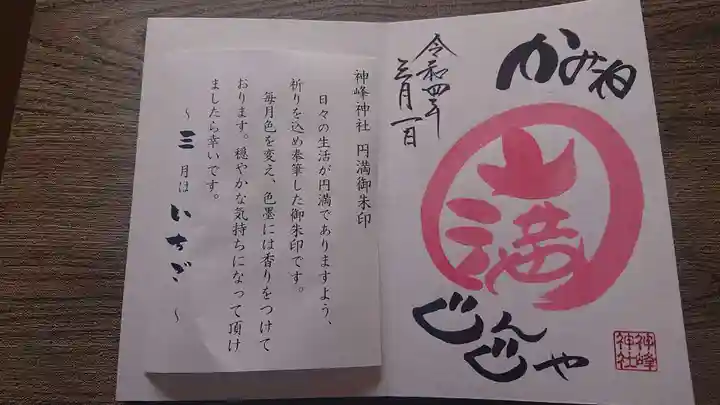 かみね
令和四年
三月一日
山
満
じんじや
神峰
神社
神峰神社 円満御朱印
日々の生活が円満でありますよう、
祈りを込め奉筆した御朱印です。
毎月色を変え、色墨には香りをつけて
おります。穏やかな気持ちになって頂け
ましたら幸いです。
〜 三月は いちご 〜